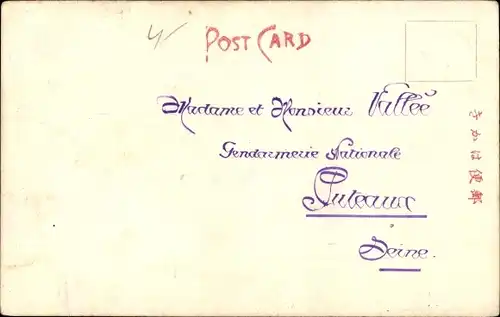 POST CARD
Madame et Monsieur Vallée
Gendarmerie Nationale
Puteaux
Seine.
きかは便郵